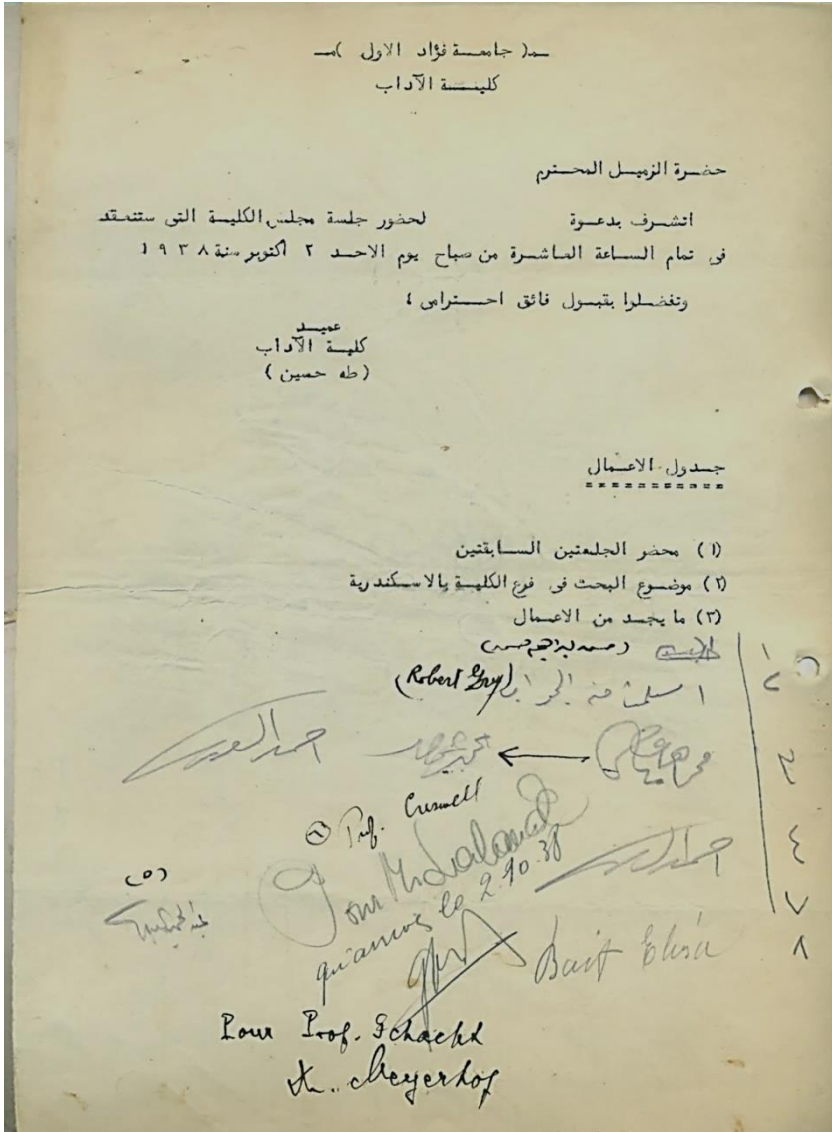 ـمـ( جامعة فؤاد الاول )ـمـ
كلية الآداب
حضرة الزميل المحترم
اتشرف بدعوة لحضور جلسة مجلس الكلية التى ستنعقد
فى تمام الساعة العاشرة من صباح يوم الاحد ٢ اكتوبر سنة ١٩٣٨
وتفضلوا بقبول فائق احترامى ؛
عميد
كلية الآداب
(طه حسين )
جدول الاعمال
(١) محضر الجلستين السابقتين
(٢) موضوع البحث فى فرع الكلية بالاسكندرية
(٣) ما يجد من الاعمال
١
٢ (Robert
٣
Prof. Creswell
Pour Mr
qu'arrive le 2.10.38
٤
(٥)
٧
٨
Pour Prof. Schacht
Meyerhof